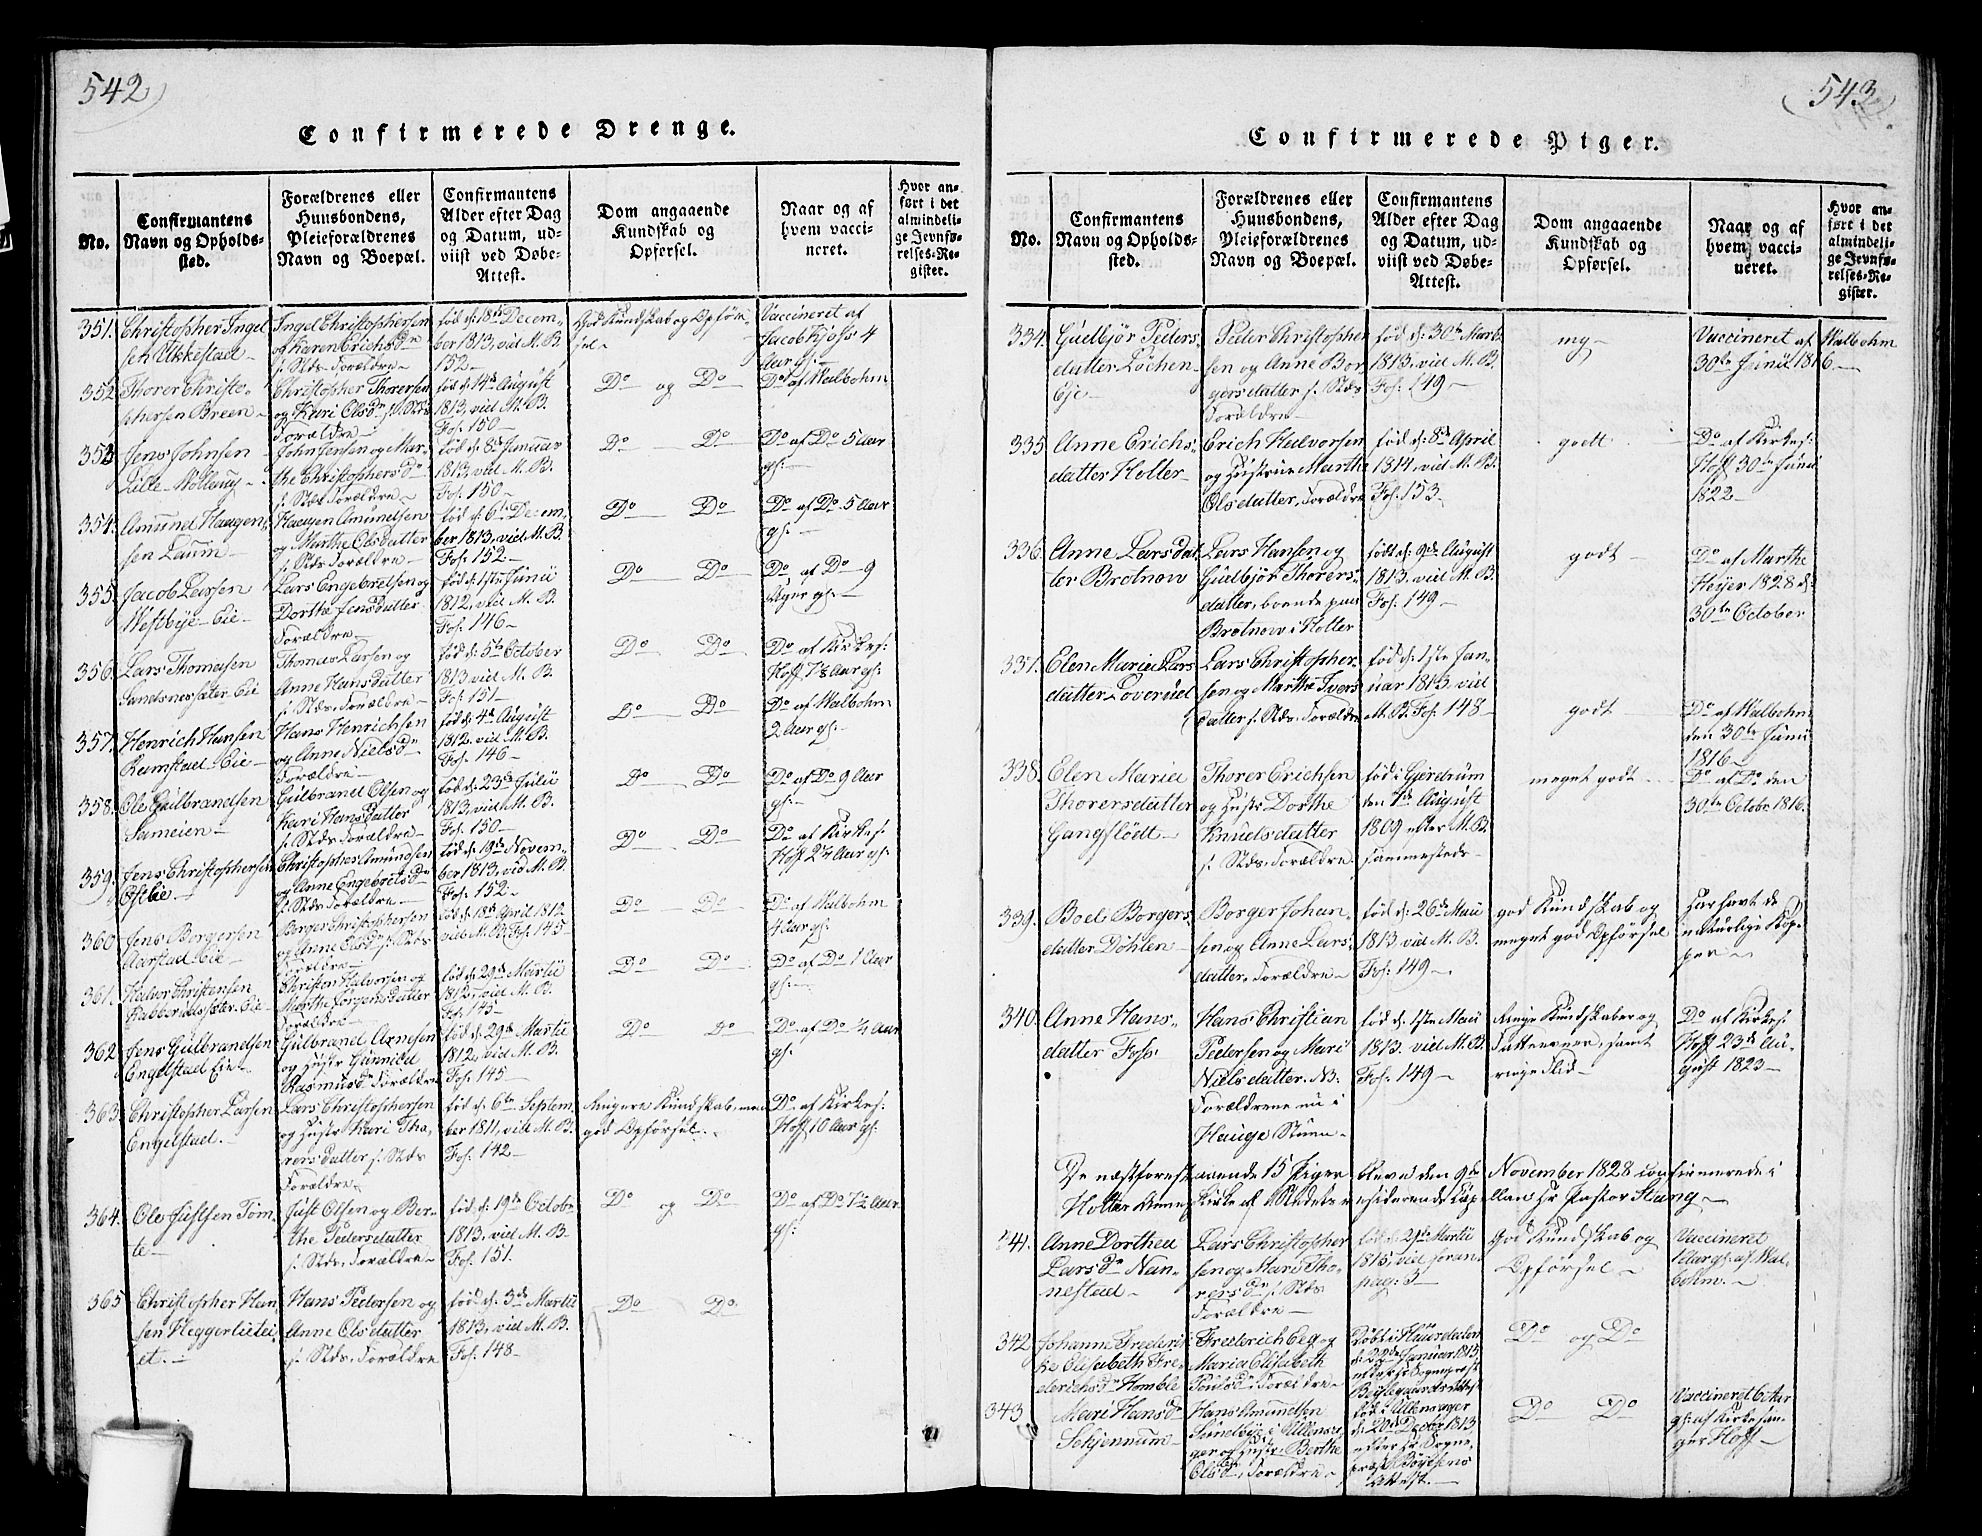 542
Confirmerede Drenge.
No.
Confirmantens
Navn og Opholds-
sted.
Forældrenes eller
Huusbondens,
Pleieforældrenes
Navn og Boepæl.
Confirmantens
Alder efter Dag
og Datum, ud-
viist ved Døbe-
Attest.
Dom angaaende
Kundskab og
Opførsel.
Naar og af
hvem vacci-
neret.
Hvor an-
ført i det
almindeli-
ge Jevnfø-
relses-Re-
gister.
351.
Christopher Ingel
sen Ukkestad
Ingel Christophersen
og Karen Erichsdr
s. Sts. Forældre
fød d: 18de Decem-
ber 1813, vid M. B.
152.
God Kundskab og Opför-
sel
Vaccineret af
Jacob 4
Aar gl.
352.
Thorer Christo-
phersen Breen
Christopher Thorersen
og Kari Olsdr s. Sts
Forældre
fød d: 14de August
1813, vid M. B.
Fol. 150
Do og Do
Do af Walbohm
353
Jens Johnsen
Lille-Mollaug
John Jensen og Mar-
the Christophersdr
s. Sts Forældre
fød d: 8de Januar
1813, vid M. B.
Fol. 150
Do Do
Do af Do 5 Aar
gl.
354.
Amund Haagen-
sen Laum
Haagen Amundsen
og Marthe Olsdatter
s. Sts Forældre
fød d: 6te Decem-
ber 1813, vid M. B.
Fol. 152.
Do Do
Do af Do 5 Aar
gl.
355.
Jacob Larsen
Westbye-Eie
Lars Engebretsen og
Dorthe Jensdatter
Forældre
fød d: 1ste Junii
1812, vid M. B.
Fol. 146
Do Do
Do af Do 9
Ager gl.
356.
Lars Thomesen
Sundsnessæter-Eie
Thomas Larsen og
Anne Hansdatter
s. Sts. Forældre
fød d: 5te October
1813 vid M. B.
Fol. 151
Do Do
Do af Kirkes:
Hoff 1½ Aar gl.
357.
Henrich Hansen
Ramstad-Eie
Hans Henrichsen
og Anne Nielsdr
Forældre
fød d: 4de August
1812. vid M. B.
Fol. 146
Do Do
Do af Walbohm
2 Aar gl.
358.
Ole Gulbrandsen
Sameien
Gulbrand Olsen og
Kari Hansdatter
s. Sts. Forældre
fød d: 23de Julii
1813, vid M. B.
Fol. 150
Do Do
Do af Do 9 Aar
gl.
359.
Jens Christophersen
Østbie
Christopher Amundsen
og Anne Engebretsdr
s. Sts. Forældre
fød d: 19de Novem-
ber 1813, vid M. B.
Fol. 152
Do Do
Do af Kirkes:
Hoff 2¼ Aar gl.
360.
Jens Borgersen
Aarstad Eie
Borger Christophersen
og Anne Olsdr s. Sts
Forældre
fød d: 18de April 1812
vid M. B. Fol. 145
Do Do
Do af Walbohm
4 Aar gl.
361.
Halvor Christensen
Eie
Christen Halvorsen og
Marthe Jörgensdatter
Forældre
fød d: 29de Martii
1812, vid M. B.
Fol. 145
Do Do
Do af Do 1 Aar
gl.
362.
Jens Gulbrandsen
Engelstad Eie
Gulbrand Arnesen
og Hustr Gunnild
Rasmusdr Forældre
fød d: 29de Martii
1812, vid M. B.
Fol. 145
Do Do
Do af Do ¼ Aar
gl.
363.
Christopher Larsen
Engelstad.
Lars Christophersen
og Hustr Kari Tho-
rersdatter s. Sts
Forældre
fød d: 6te Septem
ber 1811, vid M. B.
Fol. 142
Ringere Kundskab, men
god Opførsel.
Do af Kirkes:
Hoff 10 Aar gl:
364.
Ole Justsen Töm-
te
Just Olsen og Ber-
the Pedersdatter
s. Sts. Forældre
fød d: 19de Octobr
1813, vid M. B.
Fol. 151.
Do og Do
Do af Do 1½ Aar
gl:
365
Christopher Han
sen Heggerliteiei
et.
Hans Pedersen og
Anne Olsdatter
s. Sts. Forældre
fød d. 3de Martii
1813, vid M. B.
Fol. 148
Do Do
543
Confirmerede Piger.
No.
Confirmantens
Navn og Opholds-
sted.
Forældrenes eller
Huusbondens,
Pleieforældrenes
Navn og Boepæl.
Confirmantens
Alder efter Dag
og Datum, ud-
viist ved Døbe-
Attest.
Dom angaaende
Kundskab og
Opførsel.
Naar og af
hvem vacci-
neret.
Hvor an-
ført i det
almindeli-
ge Jevnfø-
relses-Re-
gister.
334.
Gudbjör Peders-
datter Löchen
Eje
Peder Christopher
sen og Anne Bor
gersdatter s. Sts
Forældre
fød d: 30te Marts
1813, vid M. B.
Fol. 149
mg
Vaccineret af Walbohm
30te Junii 1816
335
Anne Erichs-
datter Holter
Erich Halvorsen
og Hustrue Marthe
Olsdatter, Forældre
fød d: 8de April
1814, vid M. B.
Fol. 153
godt
Do af Kirkes:
Hoff 30te Junii
1822
336.
Anne Larsdat
ter Brotnow
Lars Hansen og
Gudbjör Thorers-
datter, boende paa
Brotnow i Holter
født d: 9de August
1813. vid M. B.
Fol. 149
godt
Do af Marthe
Høyer 1828 d:
30te October
337.
Elen Marie Lars
datter Loverud
Lars Christopher-
sen og Marthe Ivers
datter s. Sts. Forældre
fød d: 1ste Jan-
uar 1813, vid
M. B. Fol. 148
godt
Do af Walbohm
den 30te Junii
1816
338.
Elen Marie
Thorersdatter
Gangflödt
Thorer Erichsen
og Hustr Dorthe
Knudsdatter
s. Sts. Forældre
fød i Gjerdrum
den 7de August
1809 efter M. B.
sammesteds
meget godt
Do af Do den
30te Octobr 1816.
339.
Boel Borgers-
datter Döhlen
Borger Johan-
sen og Anne Lars-
datter, Forældre
fød d: 26de Maii
1813, vid M. B.
Fol. 149
god Kundskab og
meget god Opförsel
Har havt de
naturlige Kop-
per
340.
Anne Hans-
datter Foss.
Hans Christian
Pedersen og Mari
Nielsdatter. NB.
Forældrene nu i
Hauge Stuen
fød d. 1ste Maii
1813. vid M. B.
Fol. 149
Ringe Kundskaber og
Fatteevner, samt
ringe Flid
Do af Kirkes:
Hoff 23de Au-
gust 1823
De næstforestaaende 15 Piger bleve den 9de November 1828 confirmerede i
Holter Annex Kirke af Stedets residerende Capellan Hr Pastor Stang
341.
Anne Dorthea
Larsdr Nan-
nestad
Lars Christopher
sen og Mari Tho-
rersdr s. Sts
Forældre
fød d. 21de Martii
1815, vid foran
pag: 3
God Kundskab og
Opförsel
Vaccineret
1 Aar gl. af Wal-
bohm.
342
Johanne Frederik
ke Elisabeth Fre-
derichsdr Homble
Frederich Eeg og
Maria Elisabeth
Poulsdr Forældre
Döbt i
d: 22de Januar 1815
Do og Do
343
Mari Hansdr
Schjennum
Hans Amundsen
i Ullensa-
ger og Hustr. Berthe
Olsdr Forældre
fød i Ullensager
d: 20de Decbr 1813
efter Hr Sogne-
præst
Attest.
Do Do
Vaccineret 6 Aar
gl: af Kirkesan-
ger Hoff